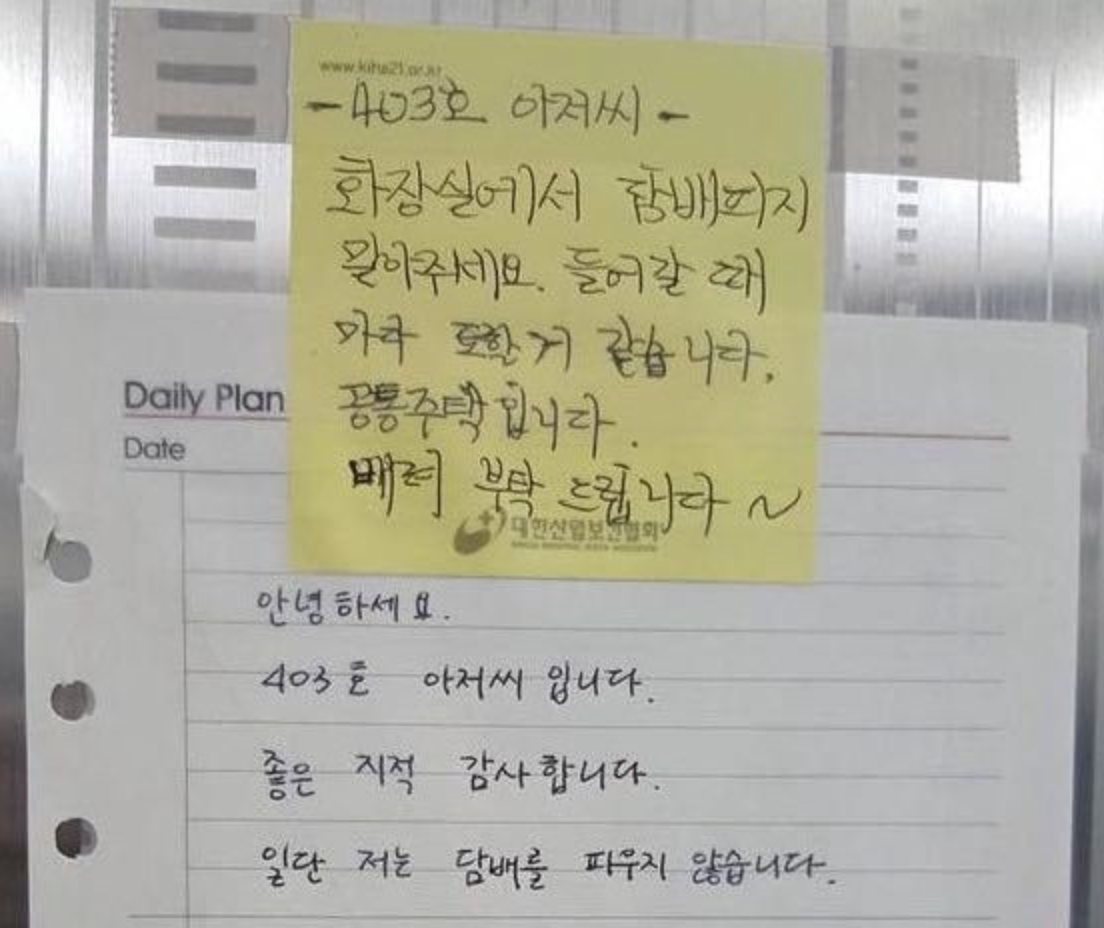 www.kiha21.or.kr
-403호 아저씨-
화장실에서 담배피지
말아주세요. 들어갈 때
마다 토할 거 같습니다.
공통주택입니다.
배려 부탁 드립니다 ~
대한산업보건협회
Daily Plan
Date
안녕하세요.
403호 아저씨 입니다.
좋은 지적 감사합니다.
일단 저는 담배를 피우지 않습니다.